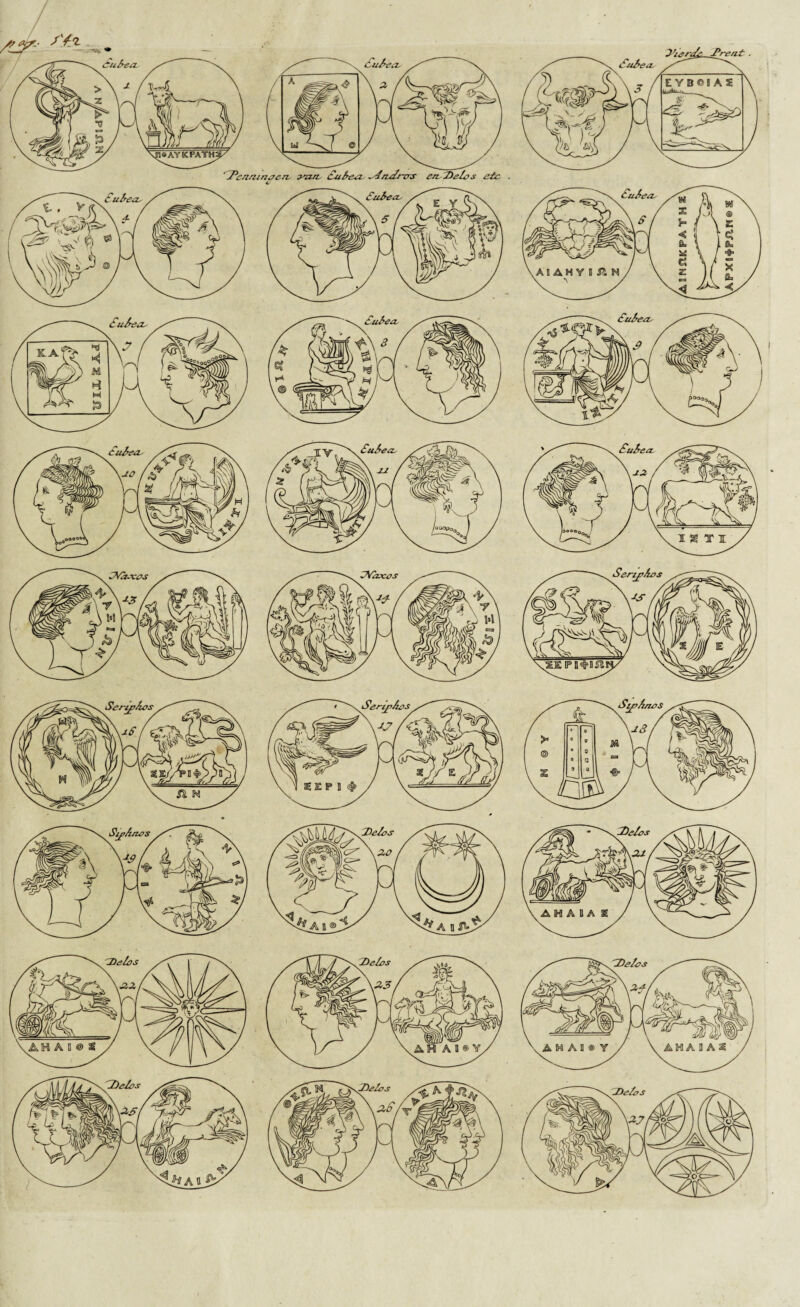 Vierde Prent.
Eubea
1
ΠΘΑΥΚΡΑΤΗΣ
Eubea
2
Eubea
3
ΕΥΒΘΙΑΣ
Penningen van Eubea Andros en Delos etc.
Eubea
4
Eubea
5
Ε Υ
Eubea
6
ΑΙΔΗΥΙΩΝ
ΔΙΝΩΚΡΑΤΗ
ΑΡΧΙΦΡΩΝΘΣ
Eubea
7
ΚΑ
Eubea
8
Eubea
9
Eubea
10
Eubea
11
Eubea
12
ΙΣΤΙ
Naxos
13
ΝΑΞΙΩΝ
Naxos
14
ΝΑΞΙΩΝ
Seriphos
15
ΣΕΡΙΦΙΩΝ
Σ Ε
Seriphos
16
ΣΕΡΙΦΙ
ΩΝ
Seriphos
17
ΣΕΡΙΦ
Σ Ε
Siphnos
18
Siphnos
19
ΣΙΦΝΙ
Delos
20
ΔΗΛΙΘΥ
ΔΗΛΙΩΝ
Delos
21
ΔΗΛΙΑΣ
Delos
22
ΔΗΛΙΘΣ
Delos
23
ΔΗΛΙΘΥ
Delos
24
ΔΗΛΙΘΥ
ΔΗΛΙΑΣ
Delos
25
ΔΗΛΙΩΝ
Delos
26
Delos
27